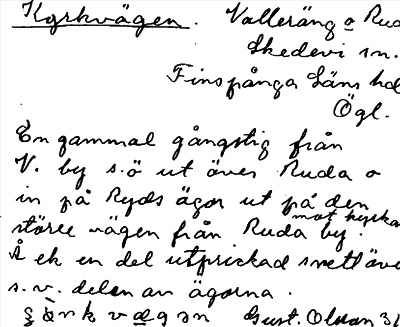 Kyrkvägen. Valleräng o Rud
Skedevi sn.
Finspånga Läns hd
Ögl.
En gammal gångstig från
V. by s.ö ut över Ruda o
in på Ryds ägor ut på den
mot kyrka
större vägen från Ruda by.
Å ek en del utprickad snett öve
s.v. delen av ägorna.
Gust. Olsson 31